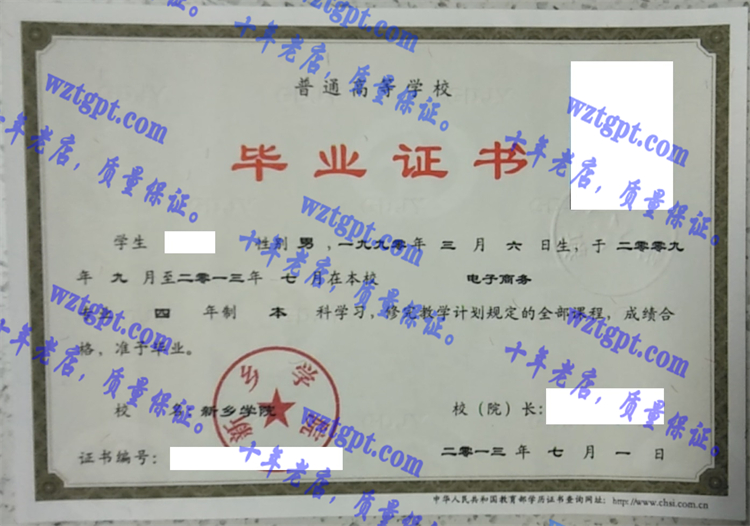 普通高等学校
毕业证书
学生 性别 男 ,一九九〇年 三 月 六 日生,于 二〇〇九
年 九 月至二〇一三年 七 月在本校 电子商务
专业 四 年制 本 科学习,修完教学计划规定的全部课程,成绩合
格,准予毕业。
校 名:新乡学院
校(院)长:
证书编号:
二〇一三 年 七 月 一 日
中华人民共和国教育部学历证书查询网址: http://www.chsi.com.cn
新乡学院
wztgpt.com
十年老店,质量保证。
wztgpt.com
十年老店,质量保证。
wztgpt.com
十年老店,质量保证。
wztgpt.com
十年老店,质量保证。
wztgpt.com
十年老店,质量保证。
wztgpt.com
十年老店,质量保证。